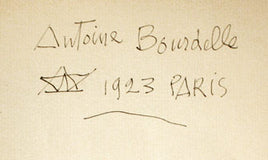 Antoine Bourdelle
1923 PARIS